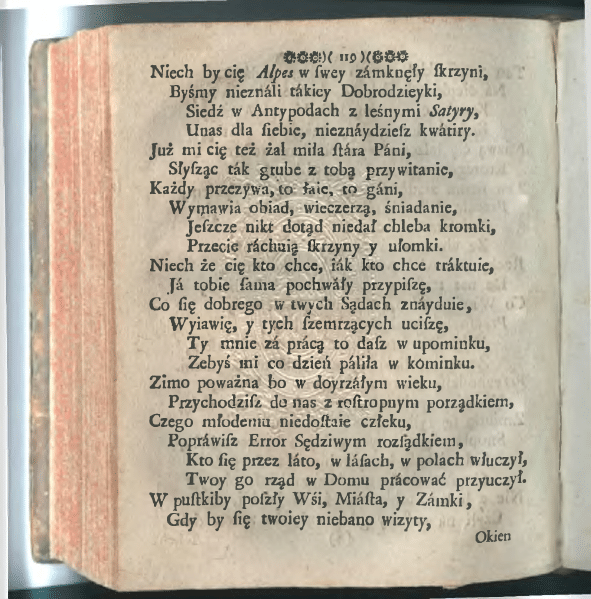 )( 119 )(
Niech by cię Alpes w ſwey zámknęły ſkrzyni,
Byśmy nieználi tákiey Dobrodzieyki,
Siedź w Antypodach z leśnymi Satyry,
Unas dla ſiebie, nieznáydzieſz kwátiry.
Już mi cię też żal miła ſtára Páni,
Słyſząc ták grube z tobą przywitanie,
Każdy przezywa, to łaie, to gáni,
Wymawia obiad, wieczerzą, śniadanie,
Jeſzcze nikt dotąd niedał chleba kromki,
Przecie ráchuią ſkrzyny y ułomki.
Niech że cię kto chce, iák kto chce tráktuie,
Já tobie ſama pochwáły przypiſzę,
Co ſię dobrego w twych Sądach znáyduie,
Wyiawię, y tych ſzemrzących uciſzę,
Ty mnie zá prácą to daſz w upominku,
Zebyś mi co dzień páliła w kominku.
Zimo poważna bo w doyrzáłym wieku,
Przychodziſz do nas z roſtropnym porządkiem,
Czego młodemu niedoſtaie człeku,
Popráwiſz Error Sędziwym rozſądkiem,
Kto ſię przez láto, w láſach, w polach włuczył,
Twoy go rząd w Domu prácować przyuczył.
W puſtkiby poſzły Wśi, Miáſta, y Zámki,
Gdy by ſię twoiey niebano wizyty,
Okien